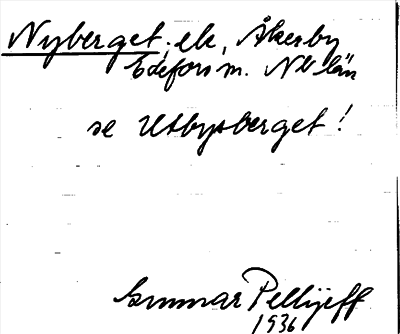 Nyberget, ek, Åkerby
Edefors sn. Nb län
se Utbysberget!
Gunnar Pellijeff
1936